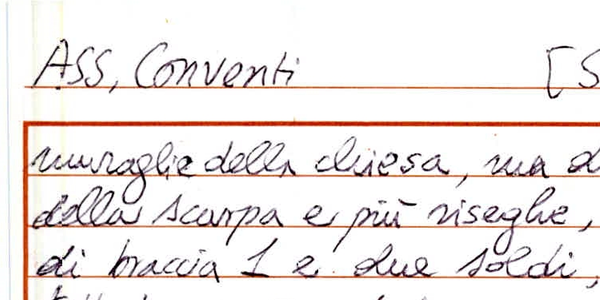 ASS, Conventi [S
muraglie della chiesa, ma d
della scarpa e più riseghe,
di braccia 1 e due soldi,